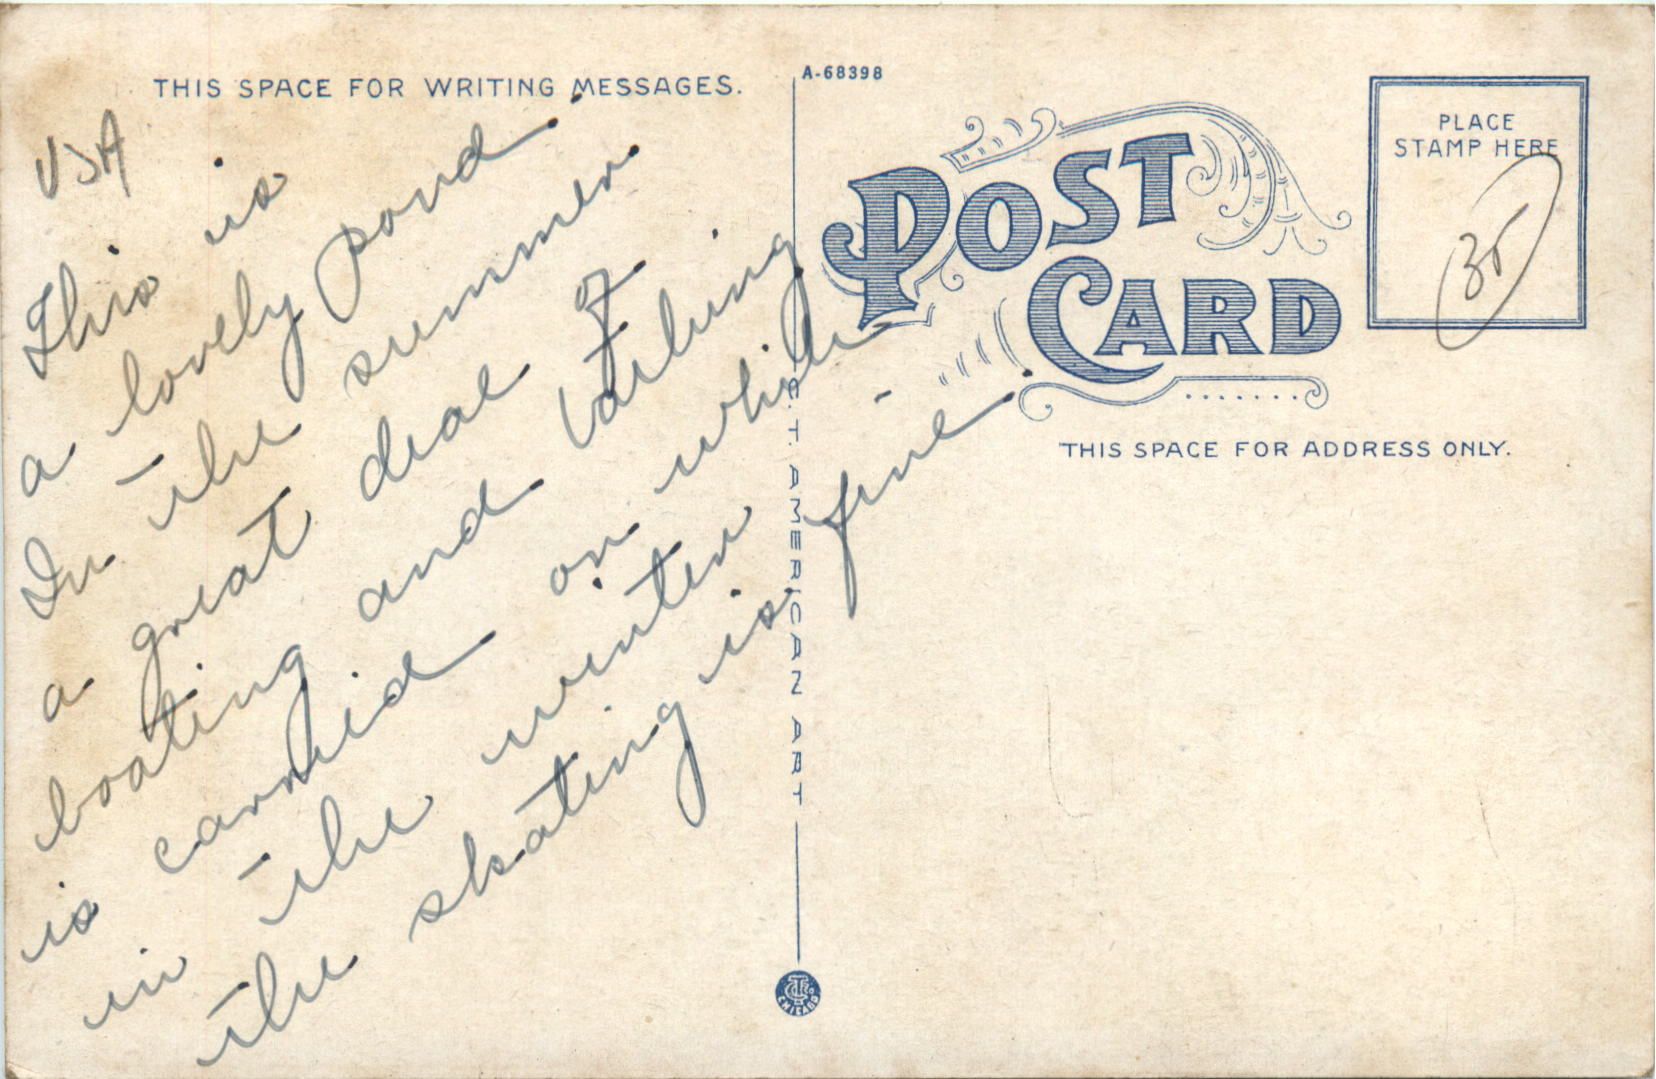 THIS SPACE FOR WRITING MESSAGES.
USA
This is
a lovely pond.
In the summer
a great deal of
boating and bathing
is carried on while
in the winter
the skating is fine.
C.T. AMERICAN ART
CHICAGO
A-68398
POST
CARD
PLACE
STAMP HERE
35
THIS SPACE FOR ADDRESS ONLY.